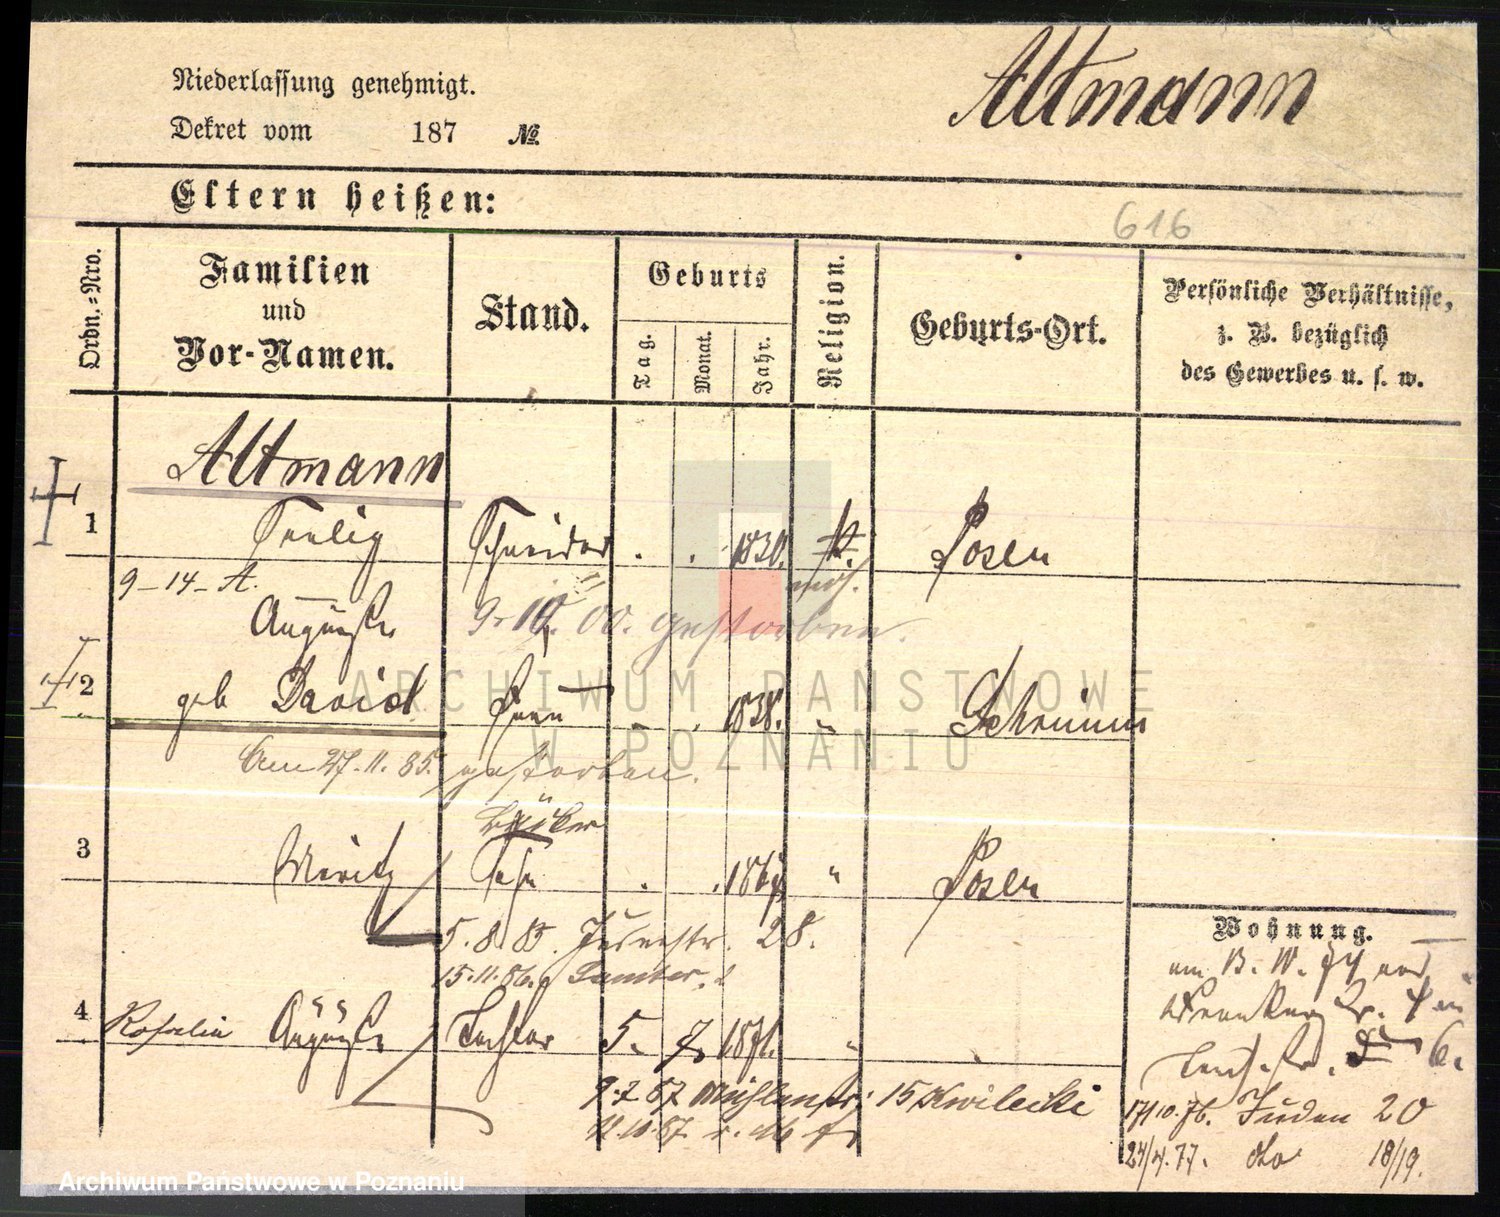 Niederlassung genehmigt.
Altmann
Dekret vom 187 No.
Eltern heißen:
616
Ordn.-Nro.
Familien
und
Vor-Namen.
Stand.
Geburts
Tag.
Monat.
Jahr.
Religion.
Geburts-Ort.
Persönliche Verhältnisse,
z. B. bezüglich
des Gewerbes u. s. w.
Altmann
1 Seelig Schneider . . 1830. Posen
mos.
9-14-A.
Auguste 9. 10. 00. gestorben.
2 geb David Frau 1838. " Schrimm
Am 27.11.85. gestorben.
3 Moritz Sohn . . " Posen
5.8.85. 28.
15.11.86.
4 Rosalie Auguste Tochter 5. 7. 1871. "
9.2.87 Mühlenstr. 15 Kwilecki
11.10.87.
Wohnung.
6.
17/10.76. Juden 20
24/4.77. dto 18/19.
ARCHIWUM PAŃSTWOWE
W POZNANIU
Archiwum Państwowe w Poznaniu